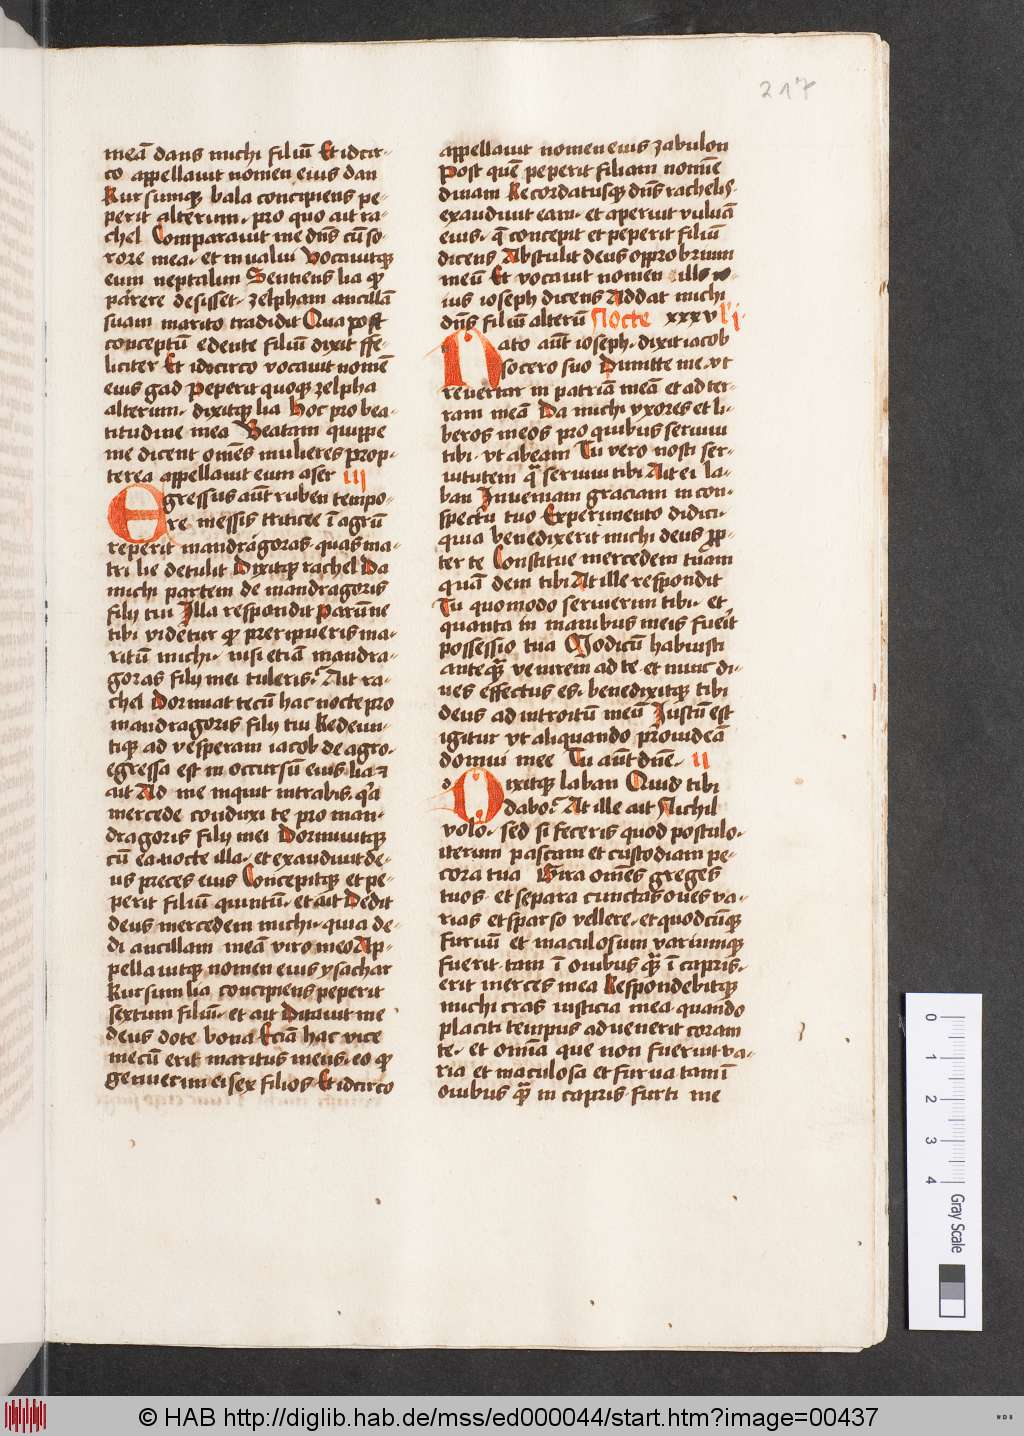 217
meā dans michi filiū Et idcir-
co appellauit nomen eius dan
Rursumqꝫ bala concipiens pe-
perit alterum· pro quo ait ra-
chel Comparauit me dn̄s cū so-
rore mea· et inualui Vocauitqꝫ
eum neptalim Sentiens lia ꝙ
parere desisset· zelpham ancillā
suam marito tradidit Qua post
conceptū edente filiū dixit ffe-
liciter Et idcirco vocauit nomē
eius gad Peperit quoqꝫ zelpha
alterum· dixitqꝫ lia Hoc pro bea-
titudine mea Beatam quippe
me dicent om̄es mulieres prop-
terea appellauit eum aser iij
Egressus aūt ruben tempo-
re messis triticee ī agrū
reperit mandragoras· quas ma-
tri lie detulit Dixitqꝫ rachel Da
michi partem de mandragoris
filij tui Illa respondit Parūne
tibi videtur ꝙ preripueris ma-
ritū michi· nisi etiā mandra-
goras filij mei tuleris? Ait ra-
chel Dormiat tecū hac nocte pro
mandragoris filij tui Redeun-
tiqꝫ ad vesperam iacob de agro·
egressa est in occursū eius lia et
ait Ad me inquit intrabis· qͥa
mercede conduxi te pro man-
dragoris filij mei Dormiuitqꝫ
cū ea nocte illa· et exaudiuit de-
us preces eius Concepitqꝫ et pe-
perit filiū quintū· et ait Dedit
deus mercedem michi· quia de-
di ancillam meā viro meo Ap-
pellauitqꝫ nomen eius ysachar
Rursum lia concipiens peperit
sextum filiū· et ait Ditauit me
deus dote bona Eciā hac vice
mecū erit maritus meus· eo ꝙ
genuerim ei sex filios Et idcirco
appellauit nomen eius zabulon
Post quē peperit filiam nomīe
dinam Recordatusqꝫ dn̄s rachelis·
exaudiuit eam· et aperuit vuluā
eius· q̄ concepit et peperit filiū
dicens Abstulit deus opprobrium
meū Et vocauit nomen
ius ioseph dicens Addat michi
dn̄s filiū alterū Nocte xxxvi i
Nato aūt ioseph· dixit iacob
socero suo Dimitte me· vt
reuertar in patriā meā et ad ter-
ram meā Da michi vxores et li-
beros meos pro quibus seruiui
tibi· vt abeam Tu vero nosti ser-
uitutem q̄ seruiui tibi Ait ei la-
ban Inueniam graciam in con-
spectu tuo Experimento didici·
quia benedixerit michi deus ꝓp-
ter te Constitue mercedem tuam
quā dem tibi At ille respondit
Tu quomodo seruierim tibi· et
quanta in manibus meis fuerit
possessio tua Modicū habuisti
anteqꝫ̄ venirem ad te· et nunc di-
ues effectus es· benedixitqꝫ tibi
deus ad introitū meū Iustū est
igitur vt aliquando prouideā
domui mee Tu aūt dn̄e· ij
Dixitqꝫ laban Quid tibi
dabo? At ille ait Nichil
volo· sed si feceris quod postulo·
iterum pascam et custodiam pe-
cora tua Gira om̄es greges
tuos· et separa cunctas oues va-
rias et sparso vellere· et quodcūqꝫ
furuū et maculosum variumqꝫ
fuerit· tam ī ouibus qꝫ̄ ī capris·
erit merces mea Respondebitqꝫ
michi cras iusticia mea· quando
placiti tempus aduenerit coram
te· et om̄ia que non fuerint va-
ria et maculosa et furua tam ī
ouibus qꝫ̄ in capris· furti me
0 1 2 3 4 Gray Scale
© HAB http://diglib.hab.de/mss/ed000044/start.htm?image=00437